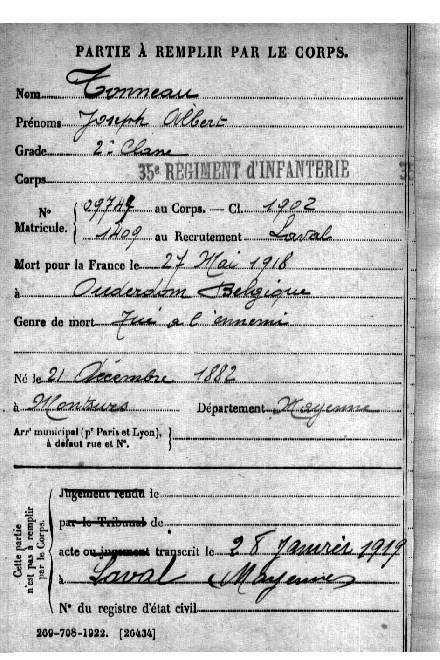 PARTIE À REMPLIR PAR LE CORPS.
Nom Tonneau
Prénoms Joseph Albert
Grade 2e Classe
Corps 35e RÉGIMENT d'INFANTERIE
N° Matricule. { 09749 au Corps. — Cl. 1902
1409 au Recrutement Laval
Mort pour la France le 27 Mai 1918
à Ouderdom Belgique
Genre de mort Tué à l'ennemi
Né le 21 Décembre 1882
à Montsurs Département Mayenne
Arrt municipal (pr Paris et Lyon), }
à défaut rue et N°.
Cette partie n'est pas à remplir par le Corps.
Jugement rendu le
par le Tribunal de
acte ou jugement transcrit le 28 Janvier 1919
à Laval Mayenne
N° du registre d'état civil
269-708-1922. [26434]